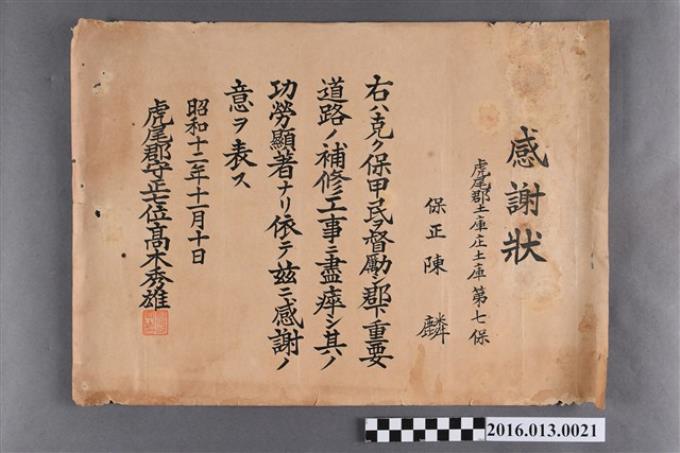 感謝狀
虎尾郡土庫庄土庫第七保
保正陳麟
右ハ克ク保甲民ヲ督勵シ郡下重要
道路ノ補修工事ニ盡瘁シ其ノ
功勞顯著ナリ依テ玆ニ感謝ノ
意ヲ表ス
昭和十二年十一月十日
虎尾郡守正七位高木秀雄
2016.013.0021